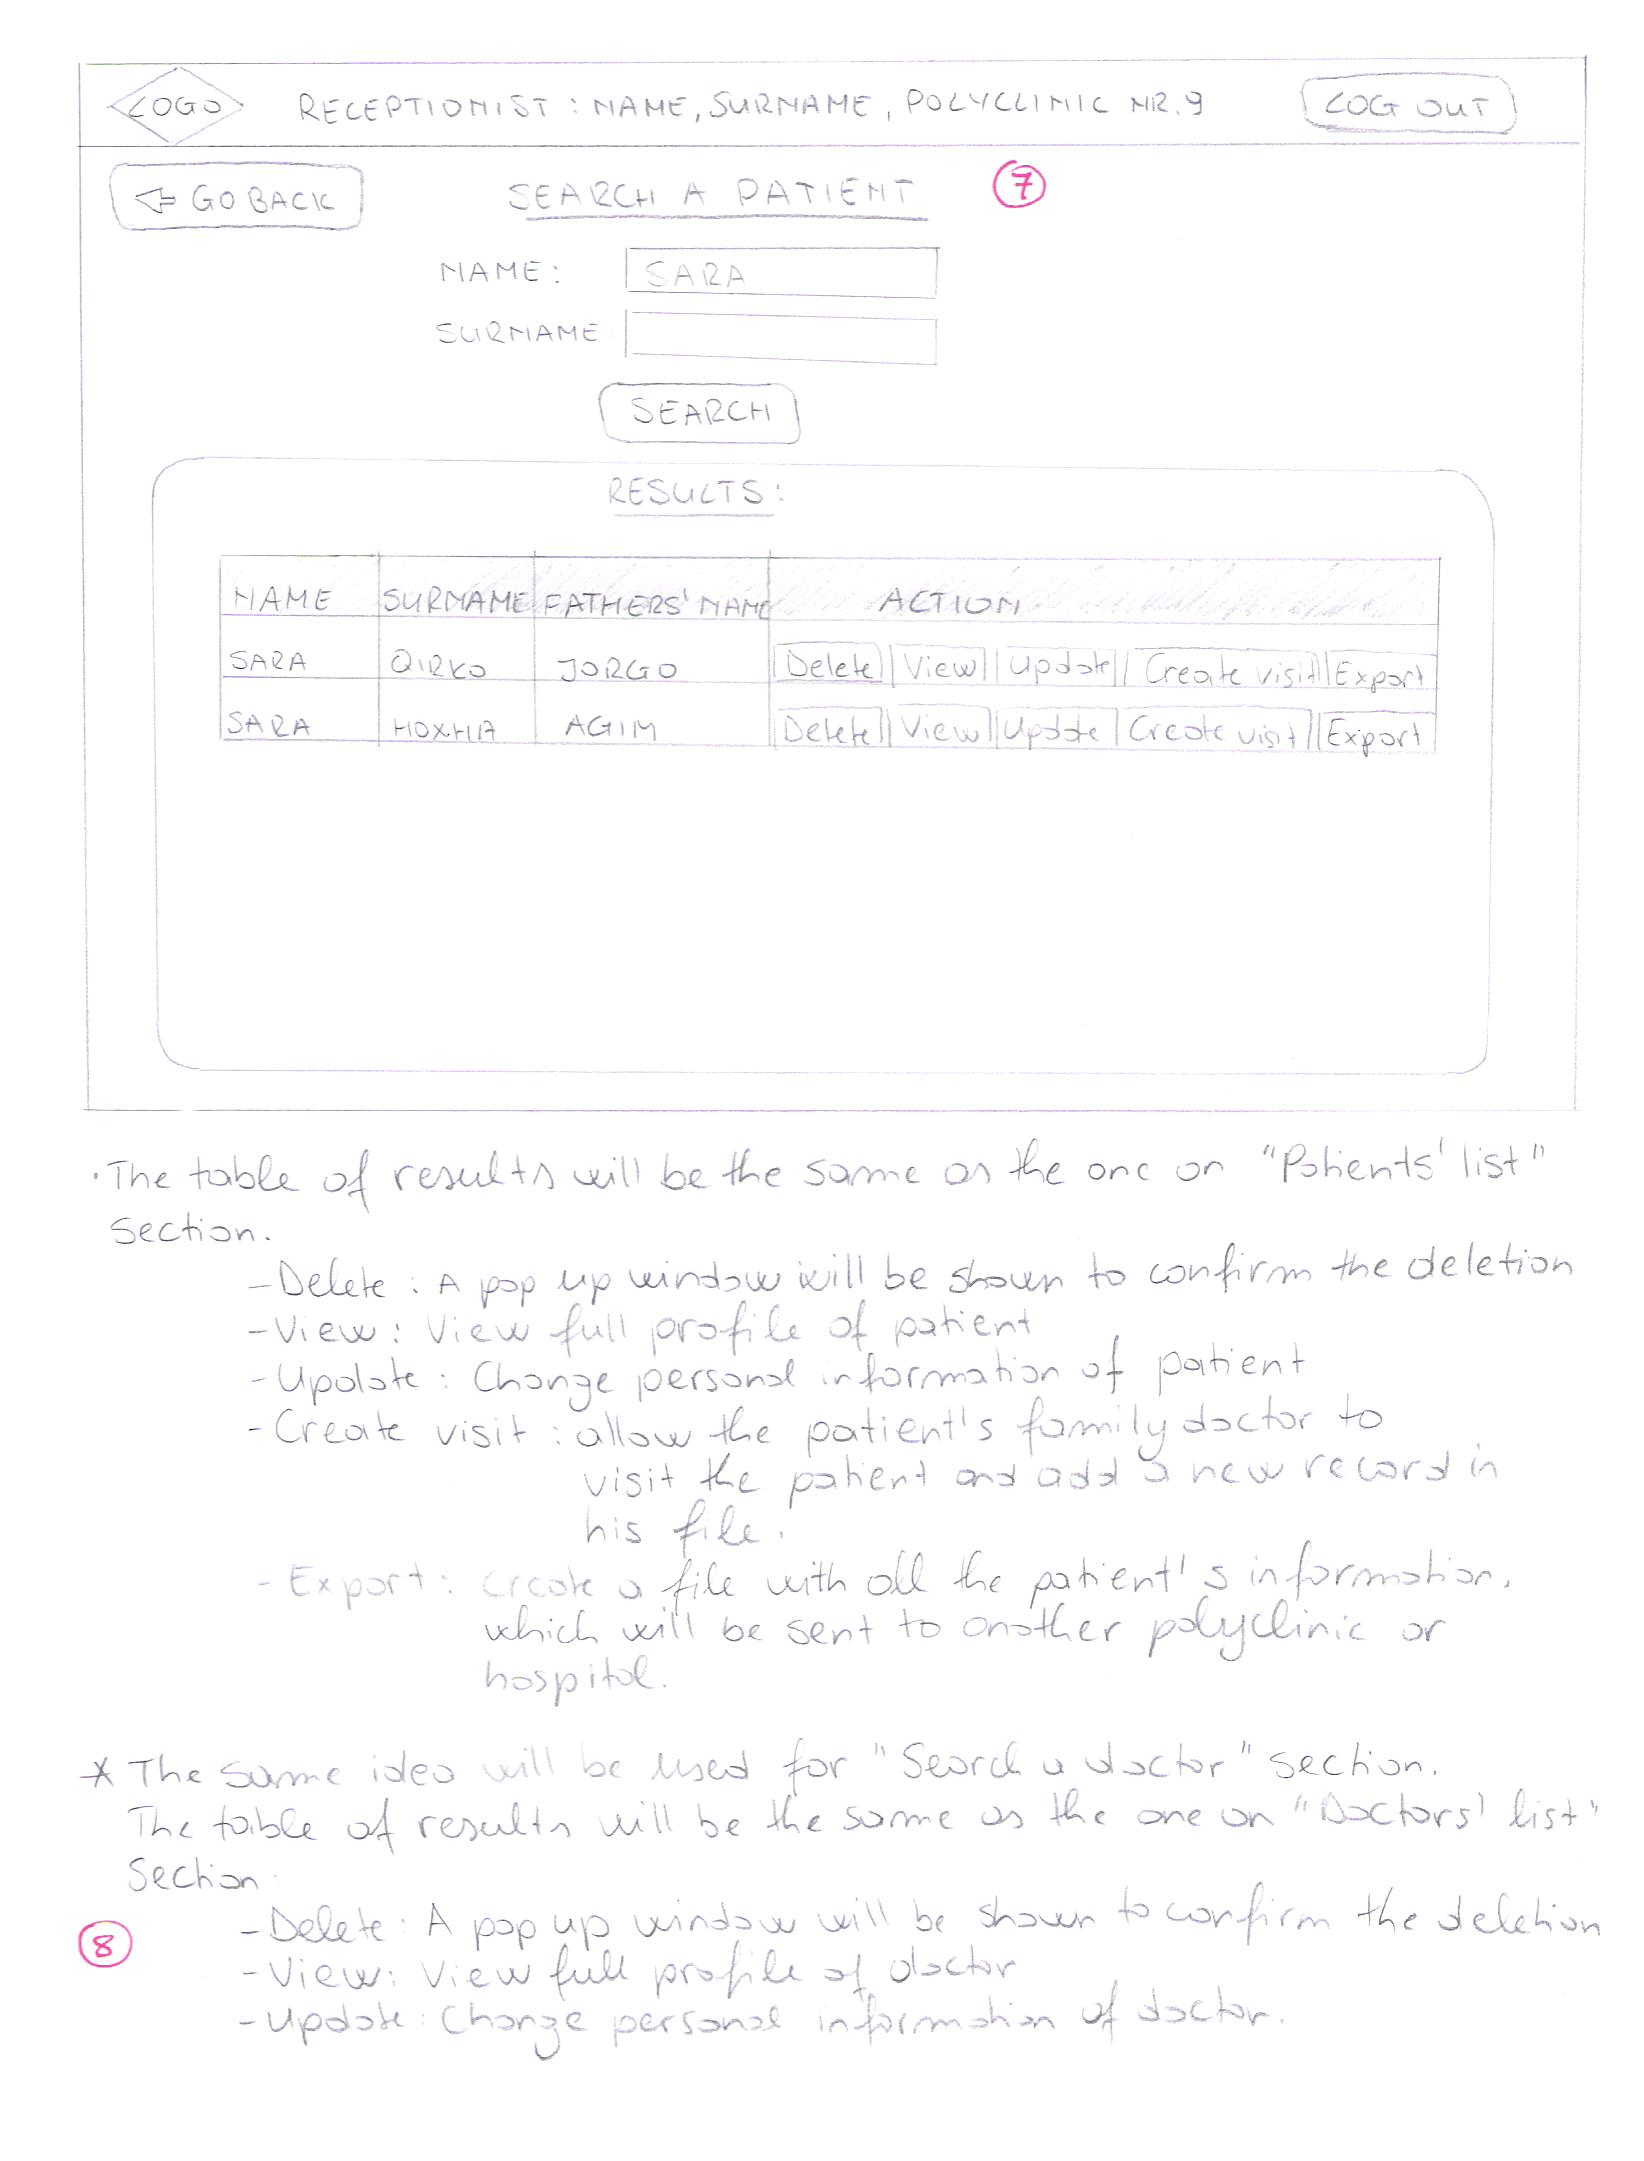 LOGO RECEPTIONIST : NAME, SURNAME, POLYCLINIC NR.9 LOG OUT
GO BACK SEARCH A PATIENT 7
NAME: SARA
SURNAME
SEARCH
RESULTS:
NAME SURNAME FATHERS' NAME ACTION
SARA QIRKO JORGO Delete View Update Create visit Export
SARA HOXHA AGIM Delete View Update Create visit Export
· The table of results will be the same as the one on "Patients' list"
section.
- Delete : A pop up window will be shown to confirm the deletion
- View : View full profile of patient
- Update : Change personal information of patient
- Create visit : allow the patient's family doctor to
visit the patient and add a new record in
his file.
- Export : create a file with all the patient's information,
which will be sent to another polyclinic or
hospital.
* The same idea will be used for "Search a doctor" section.
The table of results will be the same as the one on "Doctors' list"
section.
- Delete : A pop up window will be shown to confirm the deletion
8
- View : View full profile of doctor
- Update : Change personal information of doctor.